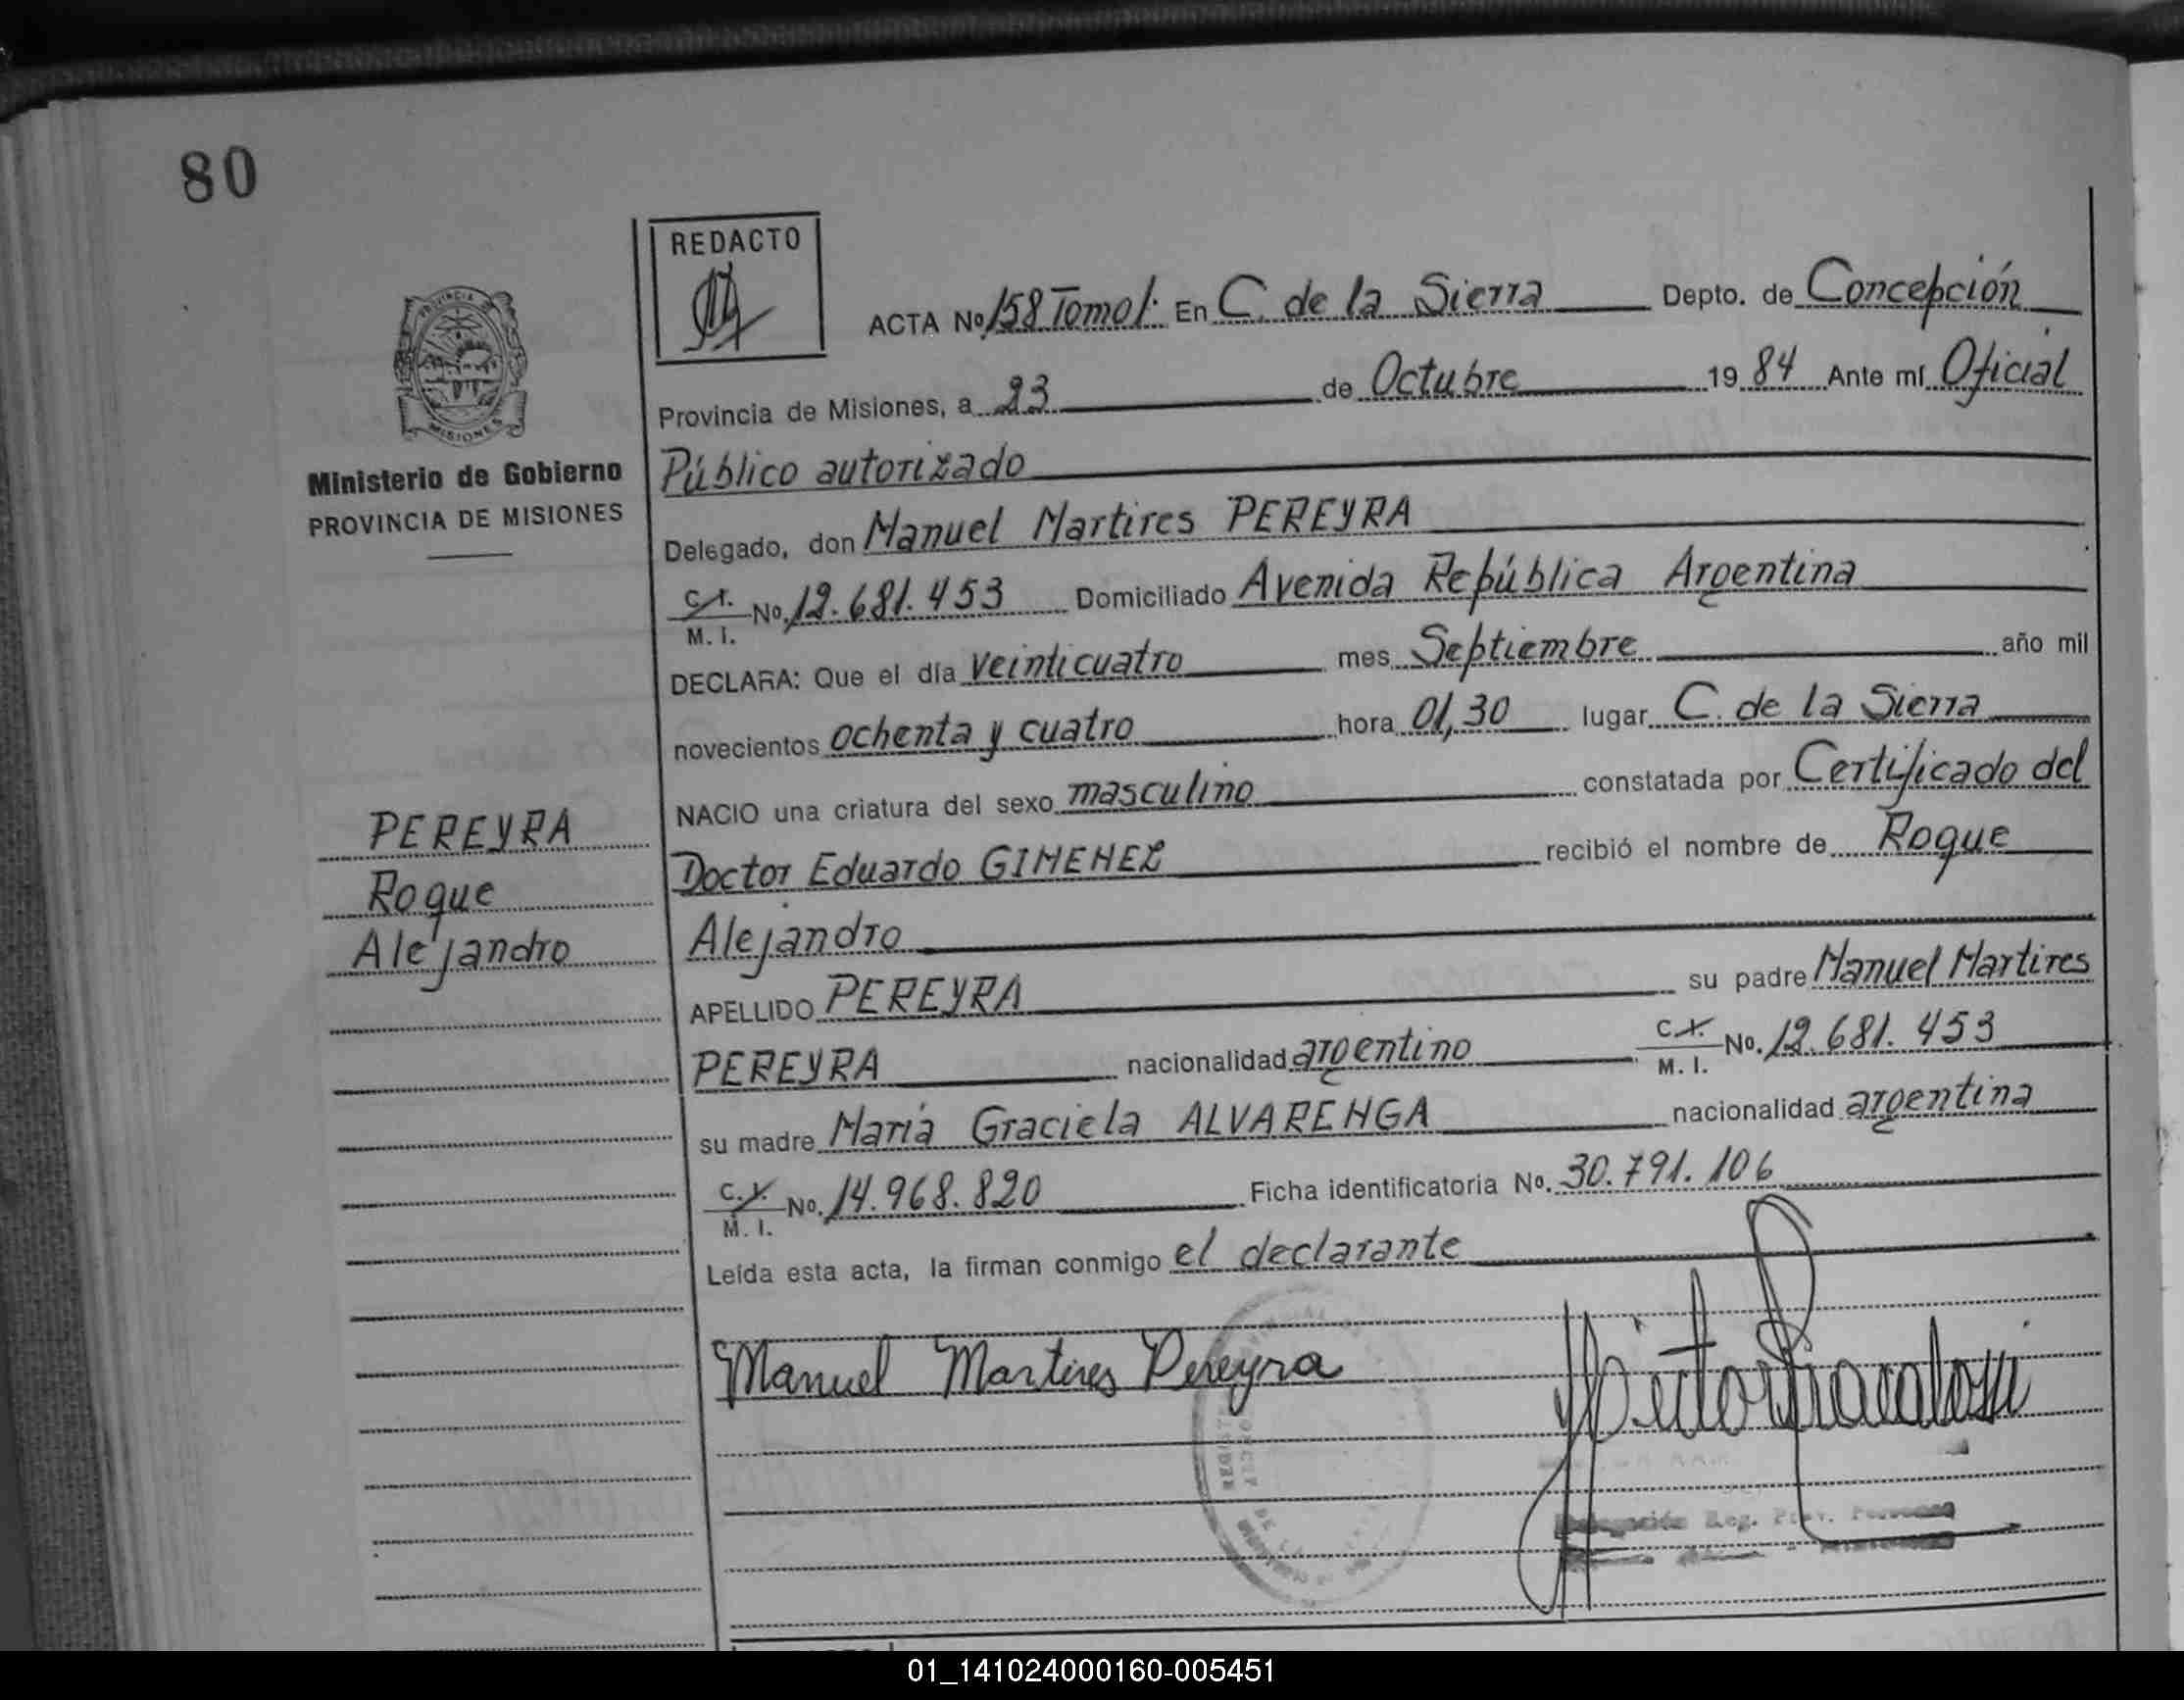 80
REDACTO
ACTA No. 158 Tomo I. En C. de la Sierra Depto. de Concepción
Provincia de Misiones, a 23 de Octubre 19 84 Ante mí Oficial
Público autorizado
Delegado, don Manuel Martires PEREYRA
C. I. M. I. No. 12.681.453 Domiciliado Avenida República Argentina
DECLARA: Que el día veinticuatro mes Septiembre año mil
novecientos ochenta y cuatro hora 01,30 lugar C. de la Sierra
NACIO una criatura del sexo masculino constatada por Certificado del
Doctor Eduardo GIMENEZ recibió el nombre de Roque
Alejandro
APELLIDO PEREYRA su padre Manuel Martires
PEREYRA nacionalidad argentino C. I. M. I. No. 12.681.453
su madre María Graciela ALVARENGA nacionalidad argentina
C. I. M. I. No. 14.968.820 Ficha identificatoria No. 30.791.106
Leída esta acta, la firman conmigo el declarante
Manuel Martires Pereyra
PROVINCIA DE
MISIONES
Ministerio de Gobierno
PROVINCIA DE MISIONES
PEREYRA
Roque
Alejandro
01_141024000160-005451